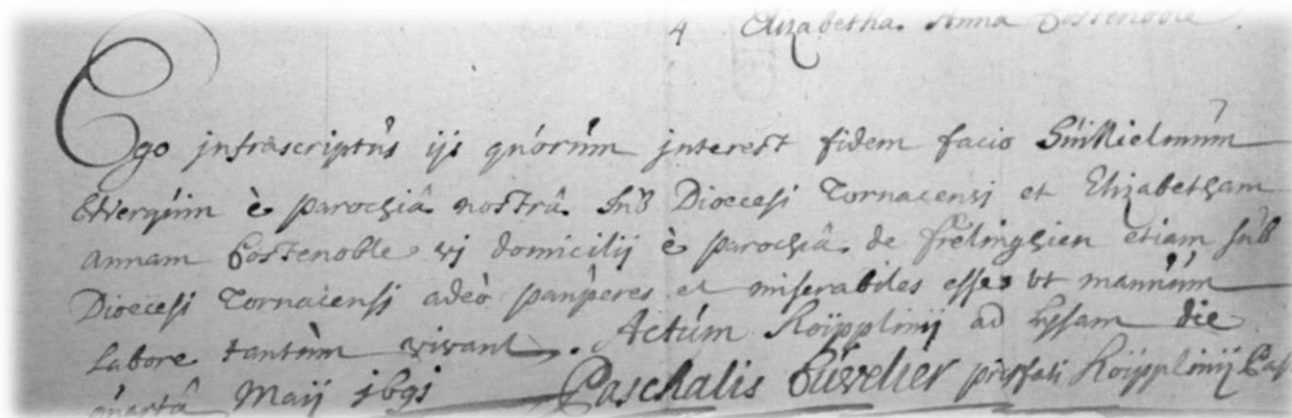 4 Elizabetha Anna Costenoble
Ego jnfrascriptus ijs quorum jnterest fidem facio Guillielmum
è parochiâ nostrâ sub Dioecesi Tornacensi et Elizabetham
annam Costenoble vi domicilij è parochiâ de frelinghien etiam sub
Dioecesi Tornacensi adeò pauperes et miserabiles esse vt manuum
labore tantùm vivant. Actum Roipplinij ad Lysam die
quartâ Maij 1691 Paschalis Cuvelier Roipplinij Pas